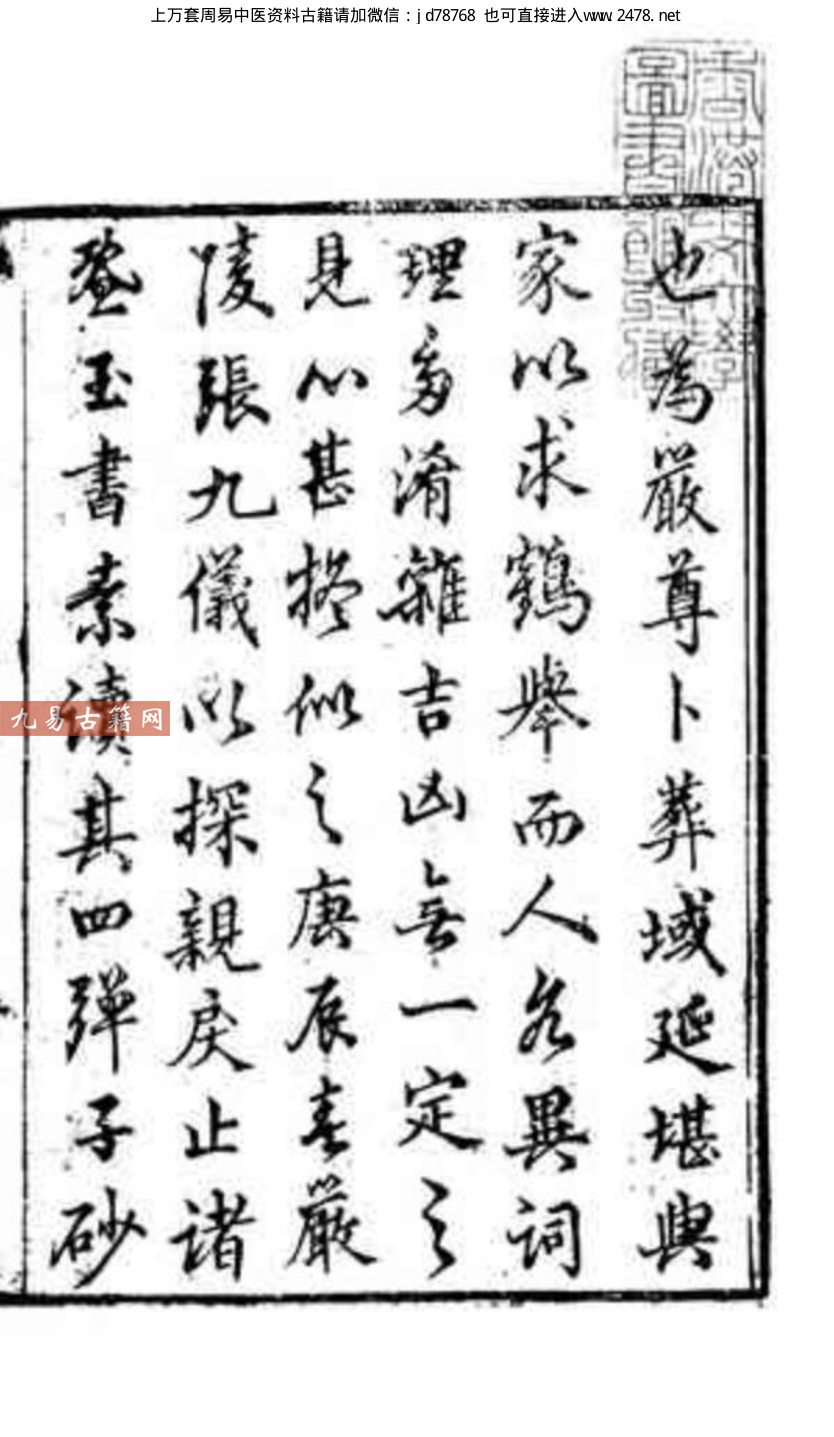 上万套周易中医资料古籍请加微信：jd78768 也可直接进入www.2478.net
也為嚴尊卜葬域延堪輿
家以求鶴舉而人各異詞
理多淆雜吉凶無一定之
見心甚擬似之庚辰春嚴
陵張九儀以探親戾止諸
暨玉書素讀其四彈子砂
九易古籍网